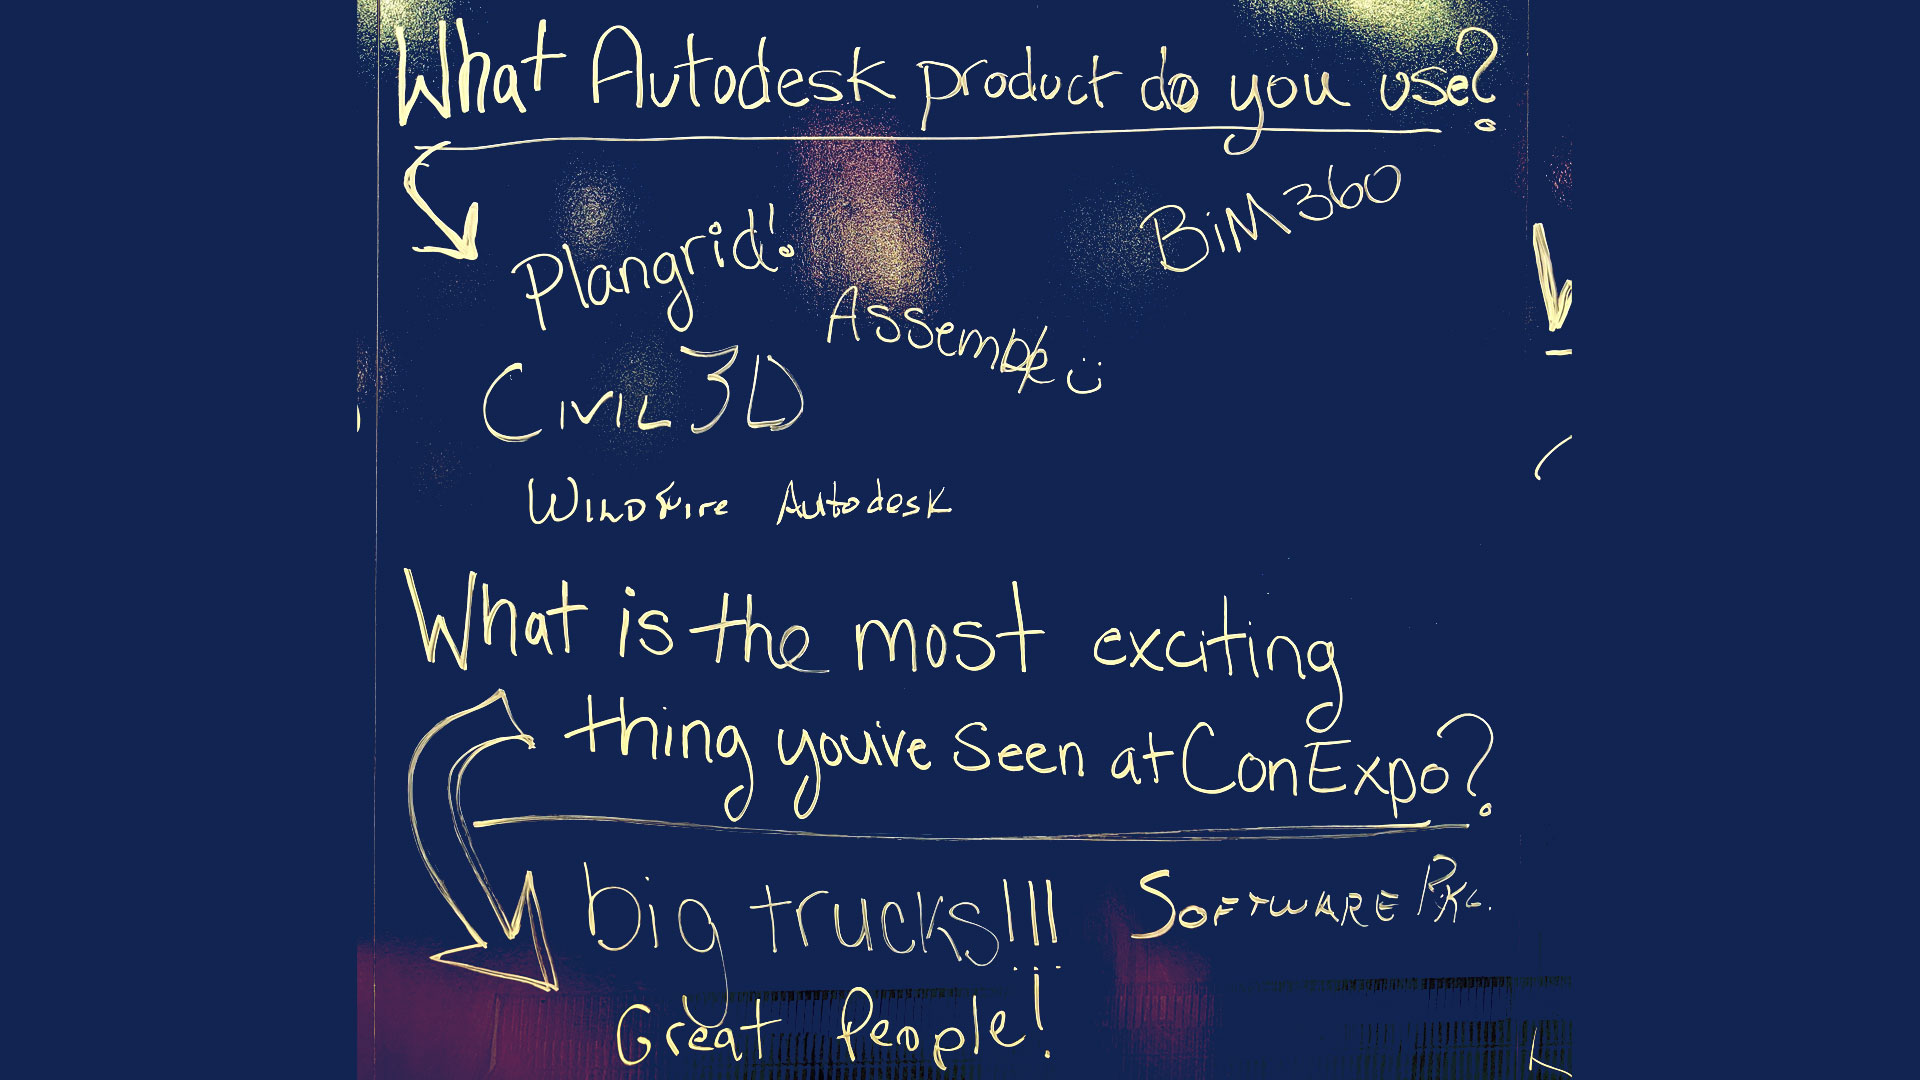 What Autodesk product do you use?
BiM 360
Plangrid!
Assemble
Civil 3D
WildFire Autodesk
What is the most exciting
thing you've seen at ConExpo?
big trucks!!!
Software Pkg.
Great People!